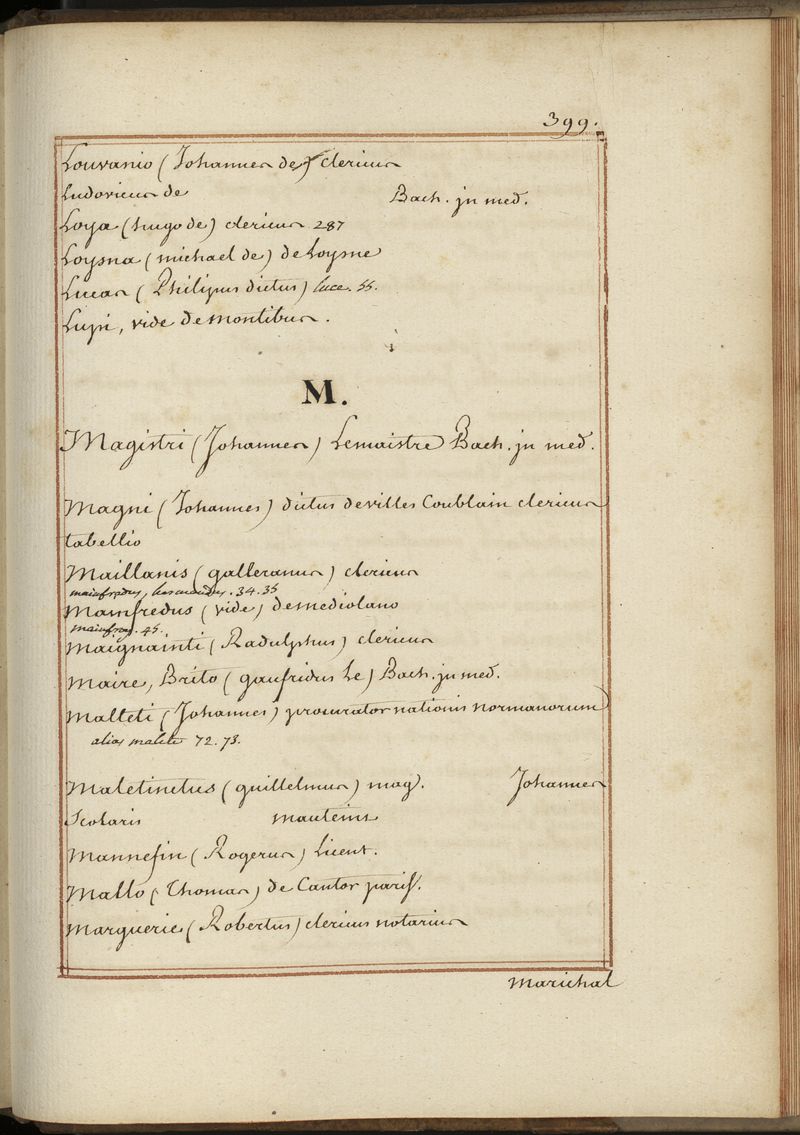 399.
Louvanio (Johannes de) clericus
Ludovicus de Bach. jn med.
Loya (hugo de) clericus 287
Loysna (michael de) de Loysne
Lucas (Philipus dictus) luce. 55.
Lupi, vide de montibus.
M.
Magistri (Johannes) Lemaistre Bach. jn med.
Magni (Johannes) dictus de villes Coublain clericus
tabellio
Maillanis (galleranus) clericus
mainfredus, 34.35
Mainfredus (vide) demediolano
mainfroy. 45.
Maignainti (Radulphus) clericus
Maire, Brito (gaufridus Le) Bach. jn med.
Malteti (Johannes) procurator nationis normanorum
alias maleti 72.73.
Maletinctus (guillelmus) mag. Johannes
Scolaris mauteins
Mannefin (Rogerus) Licent.
Mallo (Thomas) de Cantor paris.
Marguerie (Robertus) clericus notarius
Marichal